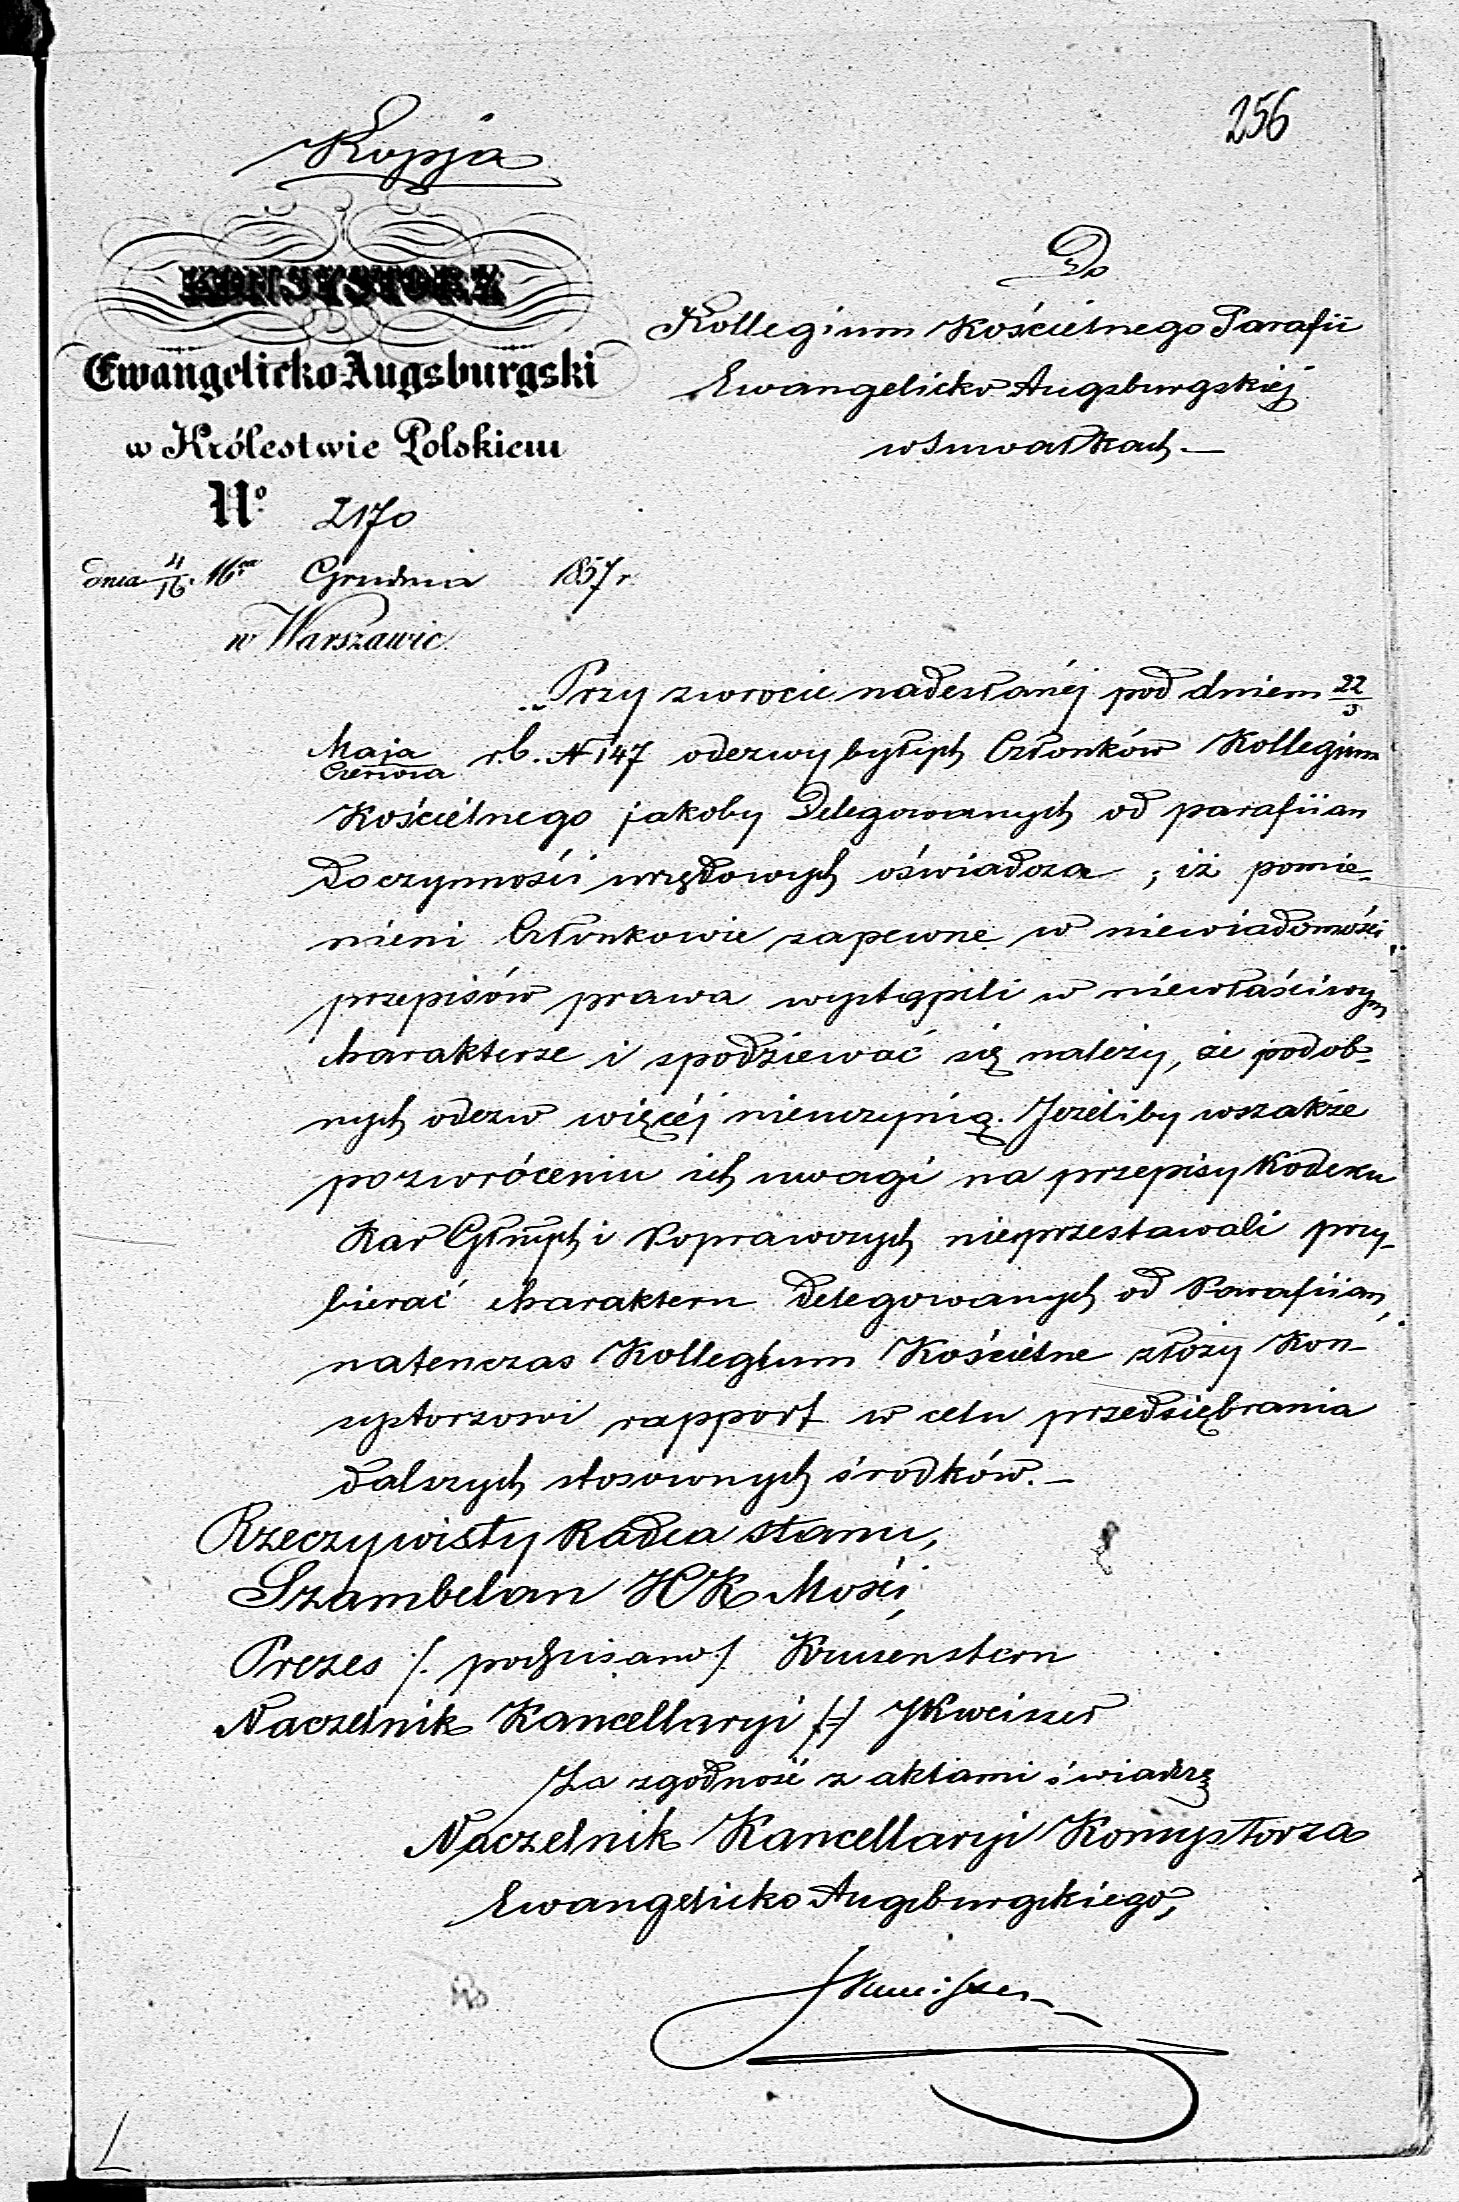 256
Kopja
KONSYSTORZ
Ewangelicko-Augsburgski
w Królestwie Polskiem
No 2170
dnia 4/16 16go Grudnia 1857 r.
w Warszawie.
Do
Kollegium Kościelnego Parafii
Ewangelicko Augsburgskiej
w Suwałkach.—
Przy zwrocie nadesłanéj pod dniem 22/3
Maja/Czerwca r.b. N 147 odezwy byłych Członków Kollegium
Kościelnego jakoby Delegowanych od parafiian
do czynności urzędowych oświadcza, iż pomie-
nieni Członkowie zapewne w niewiadomości
przepisów prawa wystąpili w niewłaściwym
charakterze i spodziewać się należy, że podob-
nych odezw więcéj nieuczynią. Jeżeliby wszakże
po zwróceniu ich uwagi na przepisy Kodexu
Kar Głnych i Poprawczych nieprzestawali przy-
bierać charakteru delegowanych od Parafiian,
natenczas Kollegium Kościelne złoży Kon-
systorzowi rapport w celu przedsiębrania
dalszych stosownych środków.—
Rzeczywisty Radca Stanu,
Szambelan JCK Mości,
Prezes /. podpisano ./ Krusenstern
Naczelnik Kancellaryi /-/ JKweisser
Za zgodność z aktami świadczę
Naczelnik Kancellaryi Konsystorza
Ewangelicko Augsburgskiego,